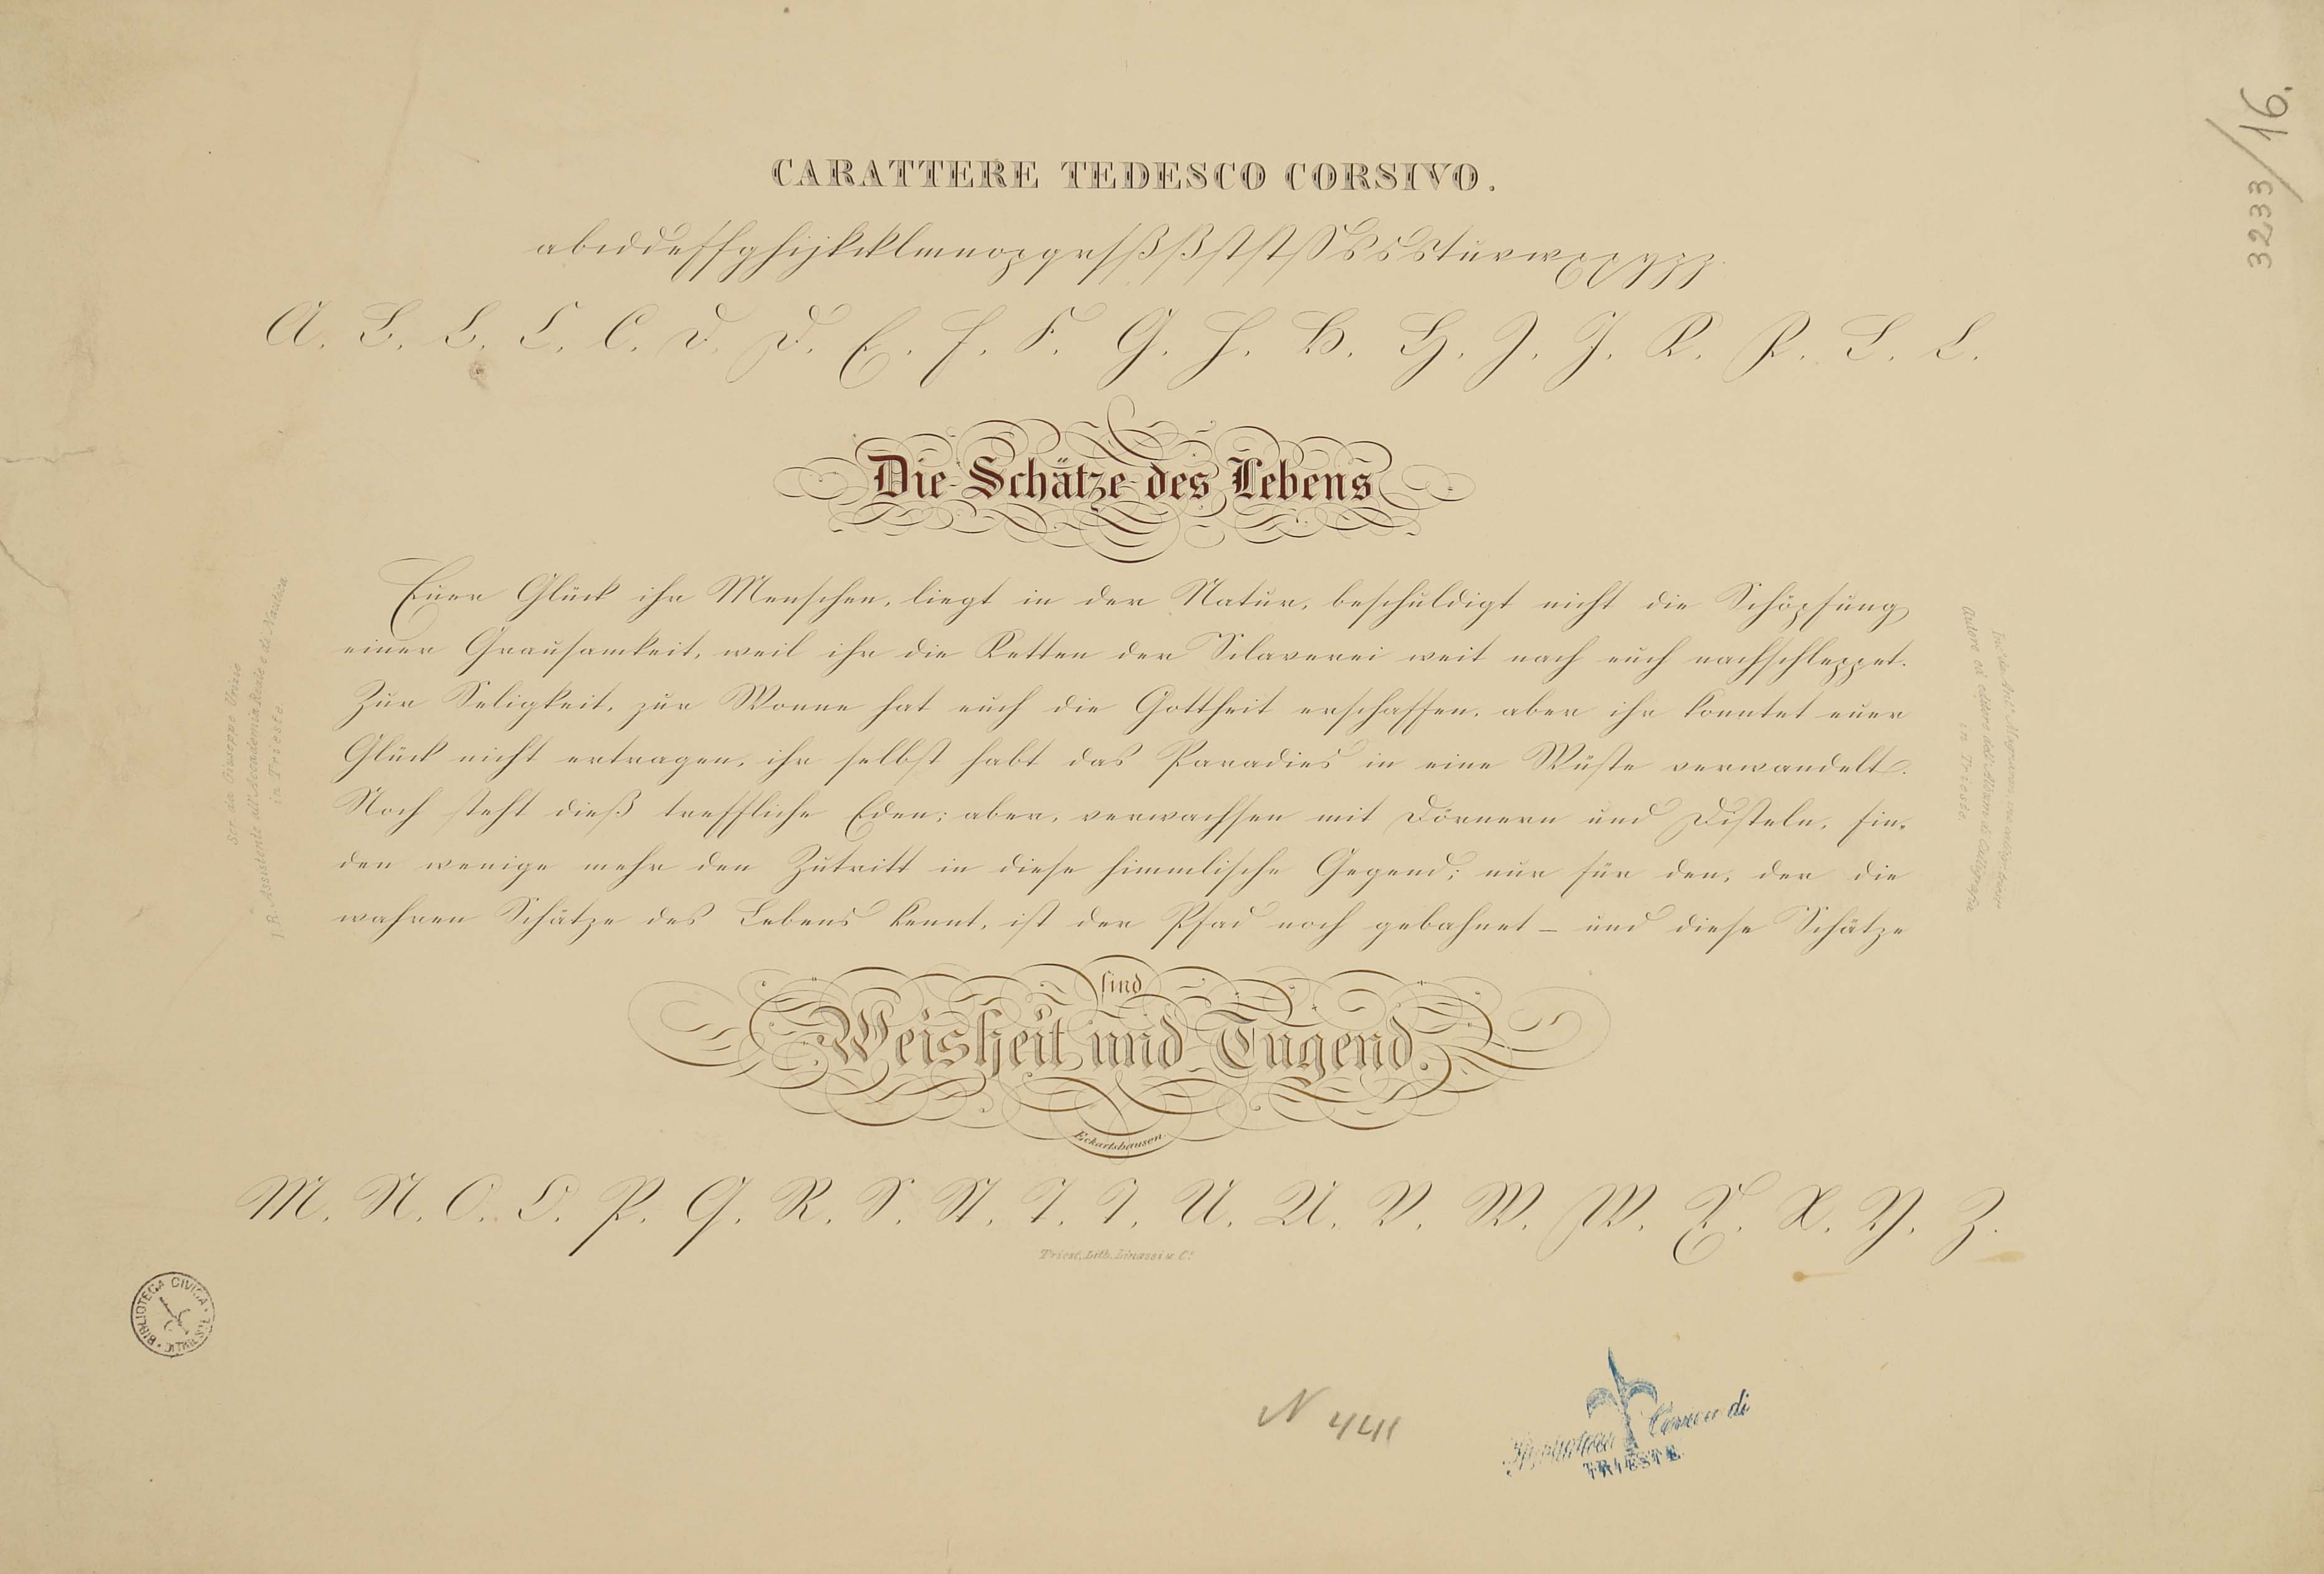 CARATTERE TEDESCO CORSIVO.
A. B. B. C. C. D. D. E. F. F. G. H. H. H. I. J. K. K. L. L.
Die Schätze des Lebens
Euer Glück ihr Menschen, liegt in der Natur, beschuldigt nicht die Schöpfung
einer Grausamkeit, weil ihr die Ketten der Sclaverei weit nach euch nachschleppet.
Zur Seligkeit, zur Wonne hat euch die Gottheit erschaffen, aber ihr konntet euer
Glück nicht ertragen, ihr selbst habt das Paradies in eine Wüste verwandelt.
Noch steht dieß treffliche Eden; aber, verwachsen mit Dörnern und Disteln, fin-
den wenige mehr den Zutritt in diese himmlische Gegend; nur für den, der die
wahren Schätze des Lebens kennt, ist der Pfad noch gebahnet – und diese Schätze
sind
Weisheit und Tugend.
Eckartshausen.
M. N. O. O. P. Q. R. S. St. T. T. U. U. V. W. W. X. X. Y. Z.
Triest, Lith. Linassi u. C.º
Scr. da Giuseppe
I. R. Assistente all'Accademia Reale e di Nautica
in Trieste
autore ed editore dell'Album di Calligrafia
in Trieste
3233/16.
BIBLIOTECA CIVICA TRIESTE
N 441
Biblioteca Civica di
TRIESTE